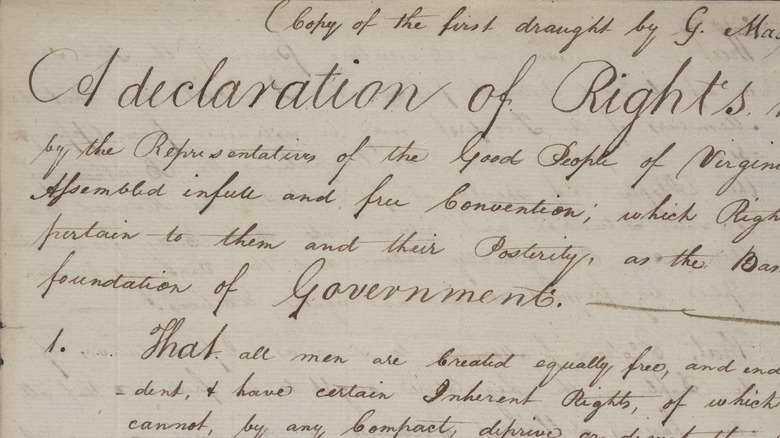 Copy of the first draught by G. Mas
A declaration of Rights,
by the Representatives of the Good People of Virgini
Assembled in full and free Convention; which Righ
pertain to them and their Posterity, as the Bas
foundation of Government.
1. That all men are Created equally free, and end
=dent, & have certain Inherent Rights, of which
cannot, by any Compact, deprive or